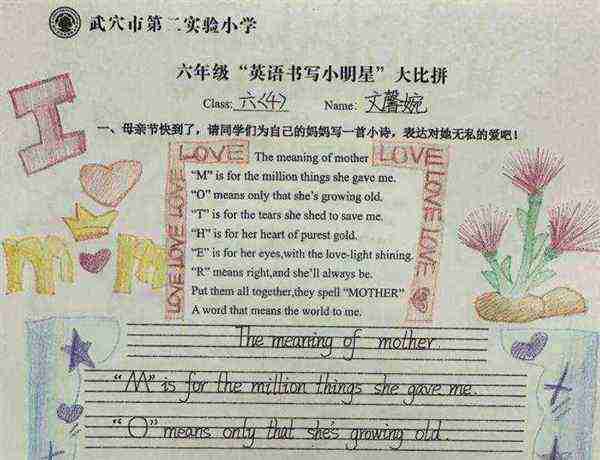 武穴市第二实验小学
六年级“英语书写小明星”大比拼
Class: 六(4) Name: 文馨婉
一、母亲节快到了，请同学们为自己的妈妈写一首小诗，表达对她无私的爱吧！
I
LOVE
LOVE
LOVE LOVE LOVE
LOVE LOVE
The meaning of mother
“M” is for the million things she gave me.
“O” means only that she's growing old.
“T” is for the tears she shed to save me.
“H” is for her heart of purest gold.
“E” is for her eyes,with the love-light shining.
“R” means right,and she'll always be.
Put them all together,they spell “MOTHER”
A word that means the world to me.
m m
The meaning of mother.
“M” is for the million things she gave me.
“O” means only that she's growing old.